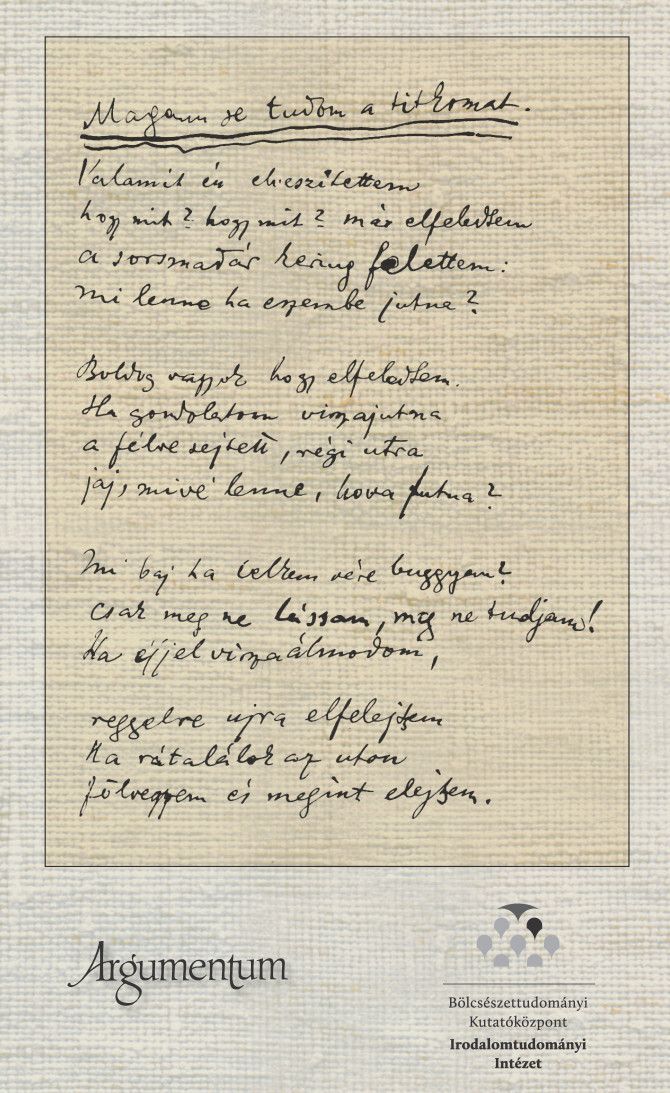 Magam se tudom a titkomat.
Valamit én elveszítettem
hogy mit? hogy mit? már elfeledtem
a sorsmadár kering felettem:
mi lenne ha eszembe jutna?
Boldog vagyok hogy elfeledtem.
Ha gondolatom visszajutna
a félve sejtett, régi utra
jaj, mivé lenne, hova futna?
Mi baj ha lelkem vére buggyan?
csak meg ne lássam, meg ne tudjam!
Ha éjjel visszaálmodom,
reggelre ujra elfelejtem
Ha rátalálok az uton
fölveszem és megint elejtem.
Argumentum
Bölcsészettudományi
Kutatóközpont
Irodalomtudományi
Intézet